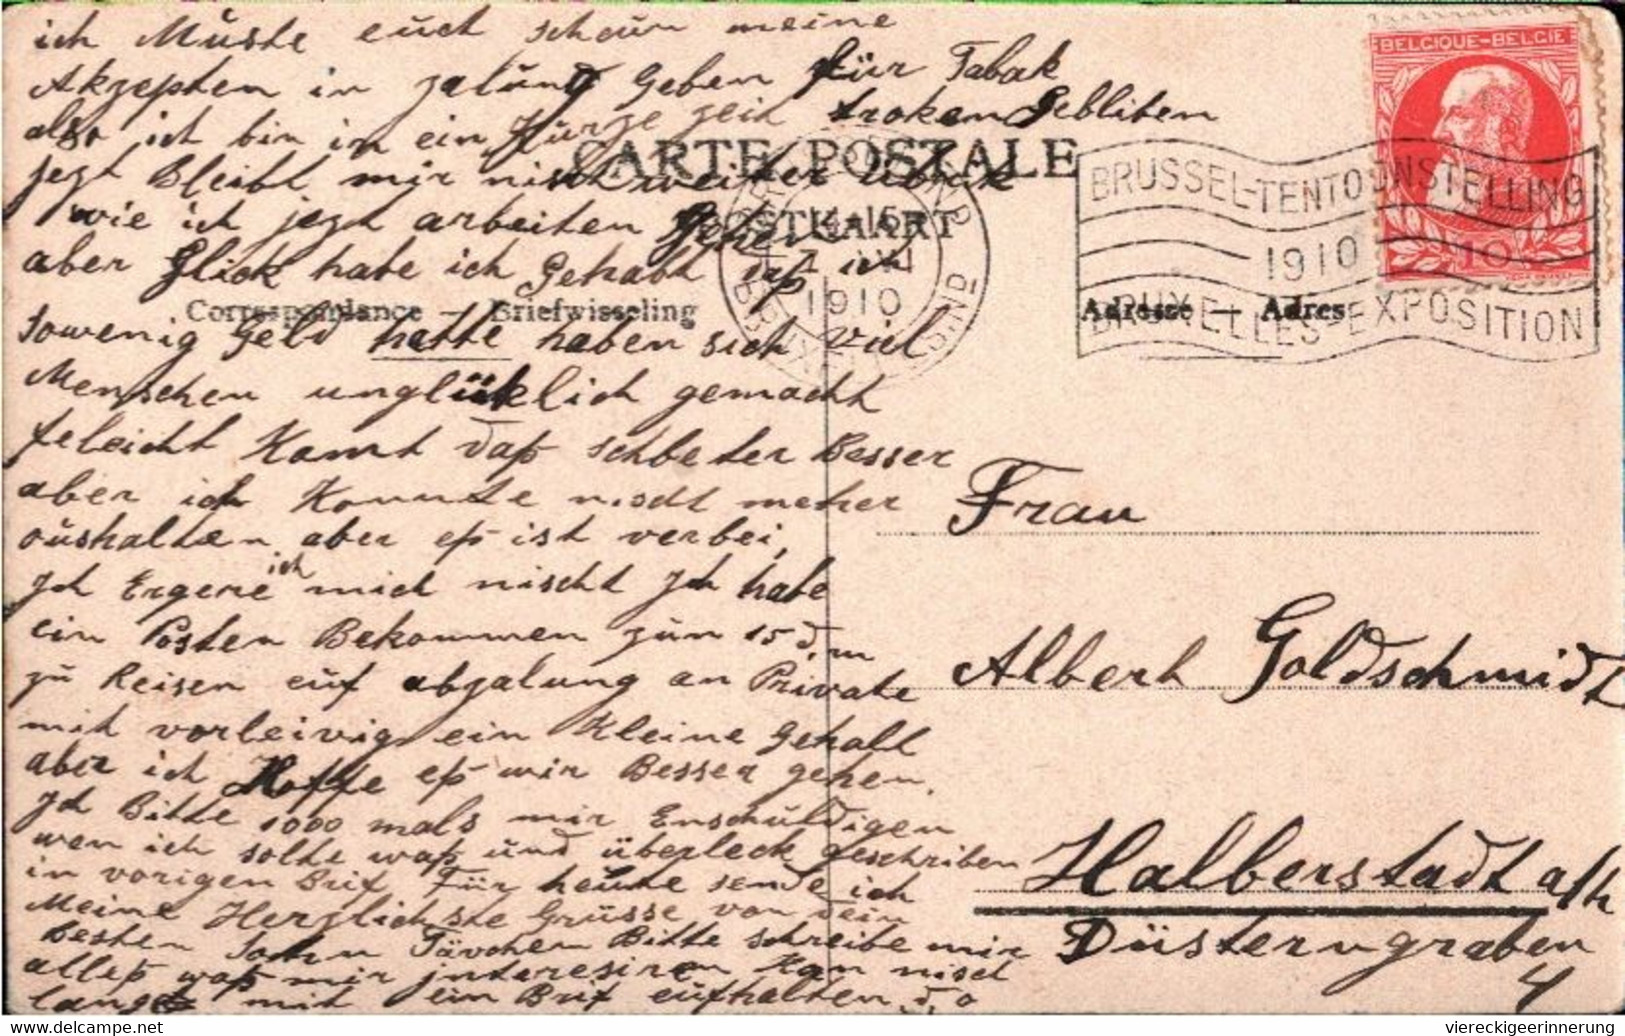 ich Muste euch schün meine
Akzepten in zalung Geben für Tabak
also ich bin in ein Kurze zeit troken Gebliben
jezt Bleibt mir nischt weiter übrik
wie ich jezt arbeiten Gehen
aber Glick habe ich Gehabt daß ich
sowenig Geld hatte haben sich viel
Menschen unglüklich gemacht
feleicht Kamt daß schbeter Besser
aber ich Konnte nischt meher
oushalten aber eß ist verbei,
Ich Ergere ich mich nischt Ich habe
ein Posten Bekommen zum 15 d, m
zu Reisen euf abzalung an Private
mit vorleivig ein Kleine Gehalt
aber ich Hoffe eß wir Besser gehen.
Ich Bitte 1000 mals mir Enschuldigen
wen ich solte waß und überleck geschriben
in vorigen Brif Für heute sende ich
Meine Herzlichste Grüsse von dein
Besten Sohn Bitte schreibe mir
alleß waß mir interesiren Kan nisct
lange mit ein Brif eufhalten d, o
CARTE POSTALE
POSTKAART
Correspondance — Briefwisseling
Adresse — Adres
1910
BELGIQUE-BELGIË
10
BRUSSEL-TENTOONSTELLING
1910
BRUXELLES-EXPOSITION
Frau
Albert Goldschmidt
Halberstadt a/h
Düsterngraben
4
www.delcampe.net
viereckigeerinnerung